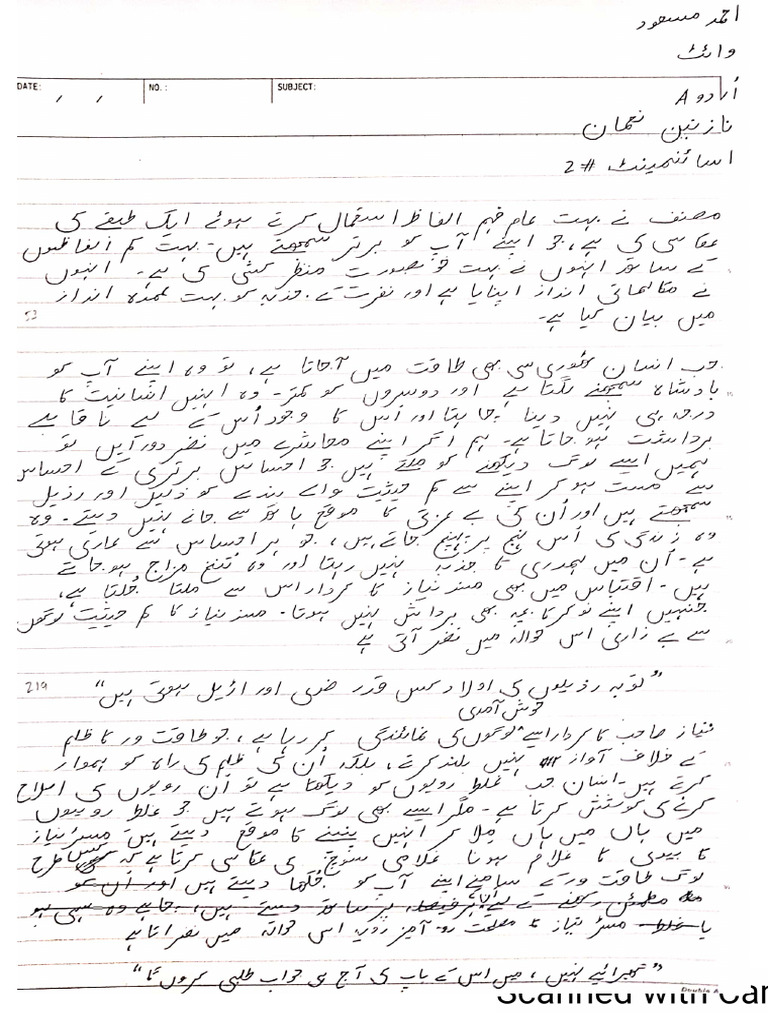 احمد مسعود
وائٹ
DATE: / / NO.: SUBJECT:
اُردو A
نازنین نعمان
اسائنمینٹ #2
مصنف نے بہت عام فہم الفاظ استعمال کرتے ہوئے ایک طبقے کی
عکاسی کی ہے، جو اپنے آپ کو برتر سمجھتے ہیں۔ بہت کم الفاظوں
کے ساتھ انہوں نے بہت خوبصورت منظر کشی کی ہے۔ انہوں
نے مکالماتی انداز اپنایا ہے اور نفرت کے جذبہ کو بہت عمدہ انداز
میں بیان کیا ہے۔
53
جب انسان تھوڑی سی بھی طاقت میں آجاتا ہے، تو وہ اپنے آپ کو
بادشاہ سمجھنے لگتا ہے اور دوسروں کو کمتر۔ وہ انہیں انسانیت کا
درجہ ہی نہیں دینا چاہتا اور اُس کا وجود اُس کے لیے ناقابلے
برداشت ہو جاتا ہے۔ ہم اگر اپنے معاشرے میں نضر دورآیں تو
ہمیں ایسے لوگ دیکھنے کو ملتے ہیں جو احساس برتری کے احساس
سے مست ہو کر اپنے سے کم حیثیت والے بندے کو ذلیل اور رذیل
سمجھتے ہیں اور اُن کی بے عزتی کا موقع ہاتھ سے جانے نہیں دیتے۔ وہ
وہ زندگی کی اُس نہج پر پہنچ جاتے ہیں، جو ہر احساس سے عاری ہوتی
ہے۔ اُن میں ہمدری کا جذبہ نہیں رہتا اور وہ تلخ مزاج ہو جاتے
ہیں۔ اقتباس میں بھی مسز نیاز کا کردار اس سے ملتا جُلتا ہے،
جنہیں اپنے نوکر کا بچہ بھی برداش نہیں ہوتا۔ مسز نیاز کا کم حیثیت لوگوں
سے بے زاری اس حوالہ میں نضر آتی ہے
"توبہ رذیلوں کی اولاد کس قدر ضدی اور اڑیل ہوتی ہیں"
219
خوش آمدی
نیاز صاحب کا کردار ایسے لوگوں کی نمائندگی کر رہا ہے، جو طاقت ور کا ظلم
کے خلاف آواز نہیں بلند کرتے، بلکہ اُن کی ظلم کی راہ کو ہموار
کرتے ہیں۔ انسان جب غلط رویوں کو دیکھتا ہے تو اُن رویوں کی اصلاح
کرنے کی کوشش کرتا ہے۔ مگر ایسے بھی لوگ ہوتے ہیں جو غلط رویوں
میں ہاں میں ہاں مِلا کر انہیں پنپنے کا موقع دیتے ہیں۔ مسٹر نیاز
کا بیوی کا غلام ہونا غلامی سوچ کی عکاسی کرتا ہے کہ کس طرح
لوگ طاقت ور کے سامنے اپنے آپ کو جھکا دیتے ہیں اور اُن کو
مطمئن رکھنے کے لیے ہر فیصلہ پر ساتھ دیتے ہیں، چاہے وہ سہی ہو
یا غلط۔ مسٹر نیاز کا مصلحت آمیز رویہ اس حوالہ میں نضر اتا ہے
"گھبرائیے نہیں، میں اس کے باپ کی آج ہی جواب طلبی کروں گا"
Double A
Scanned with Car